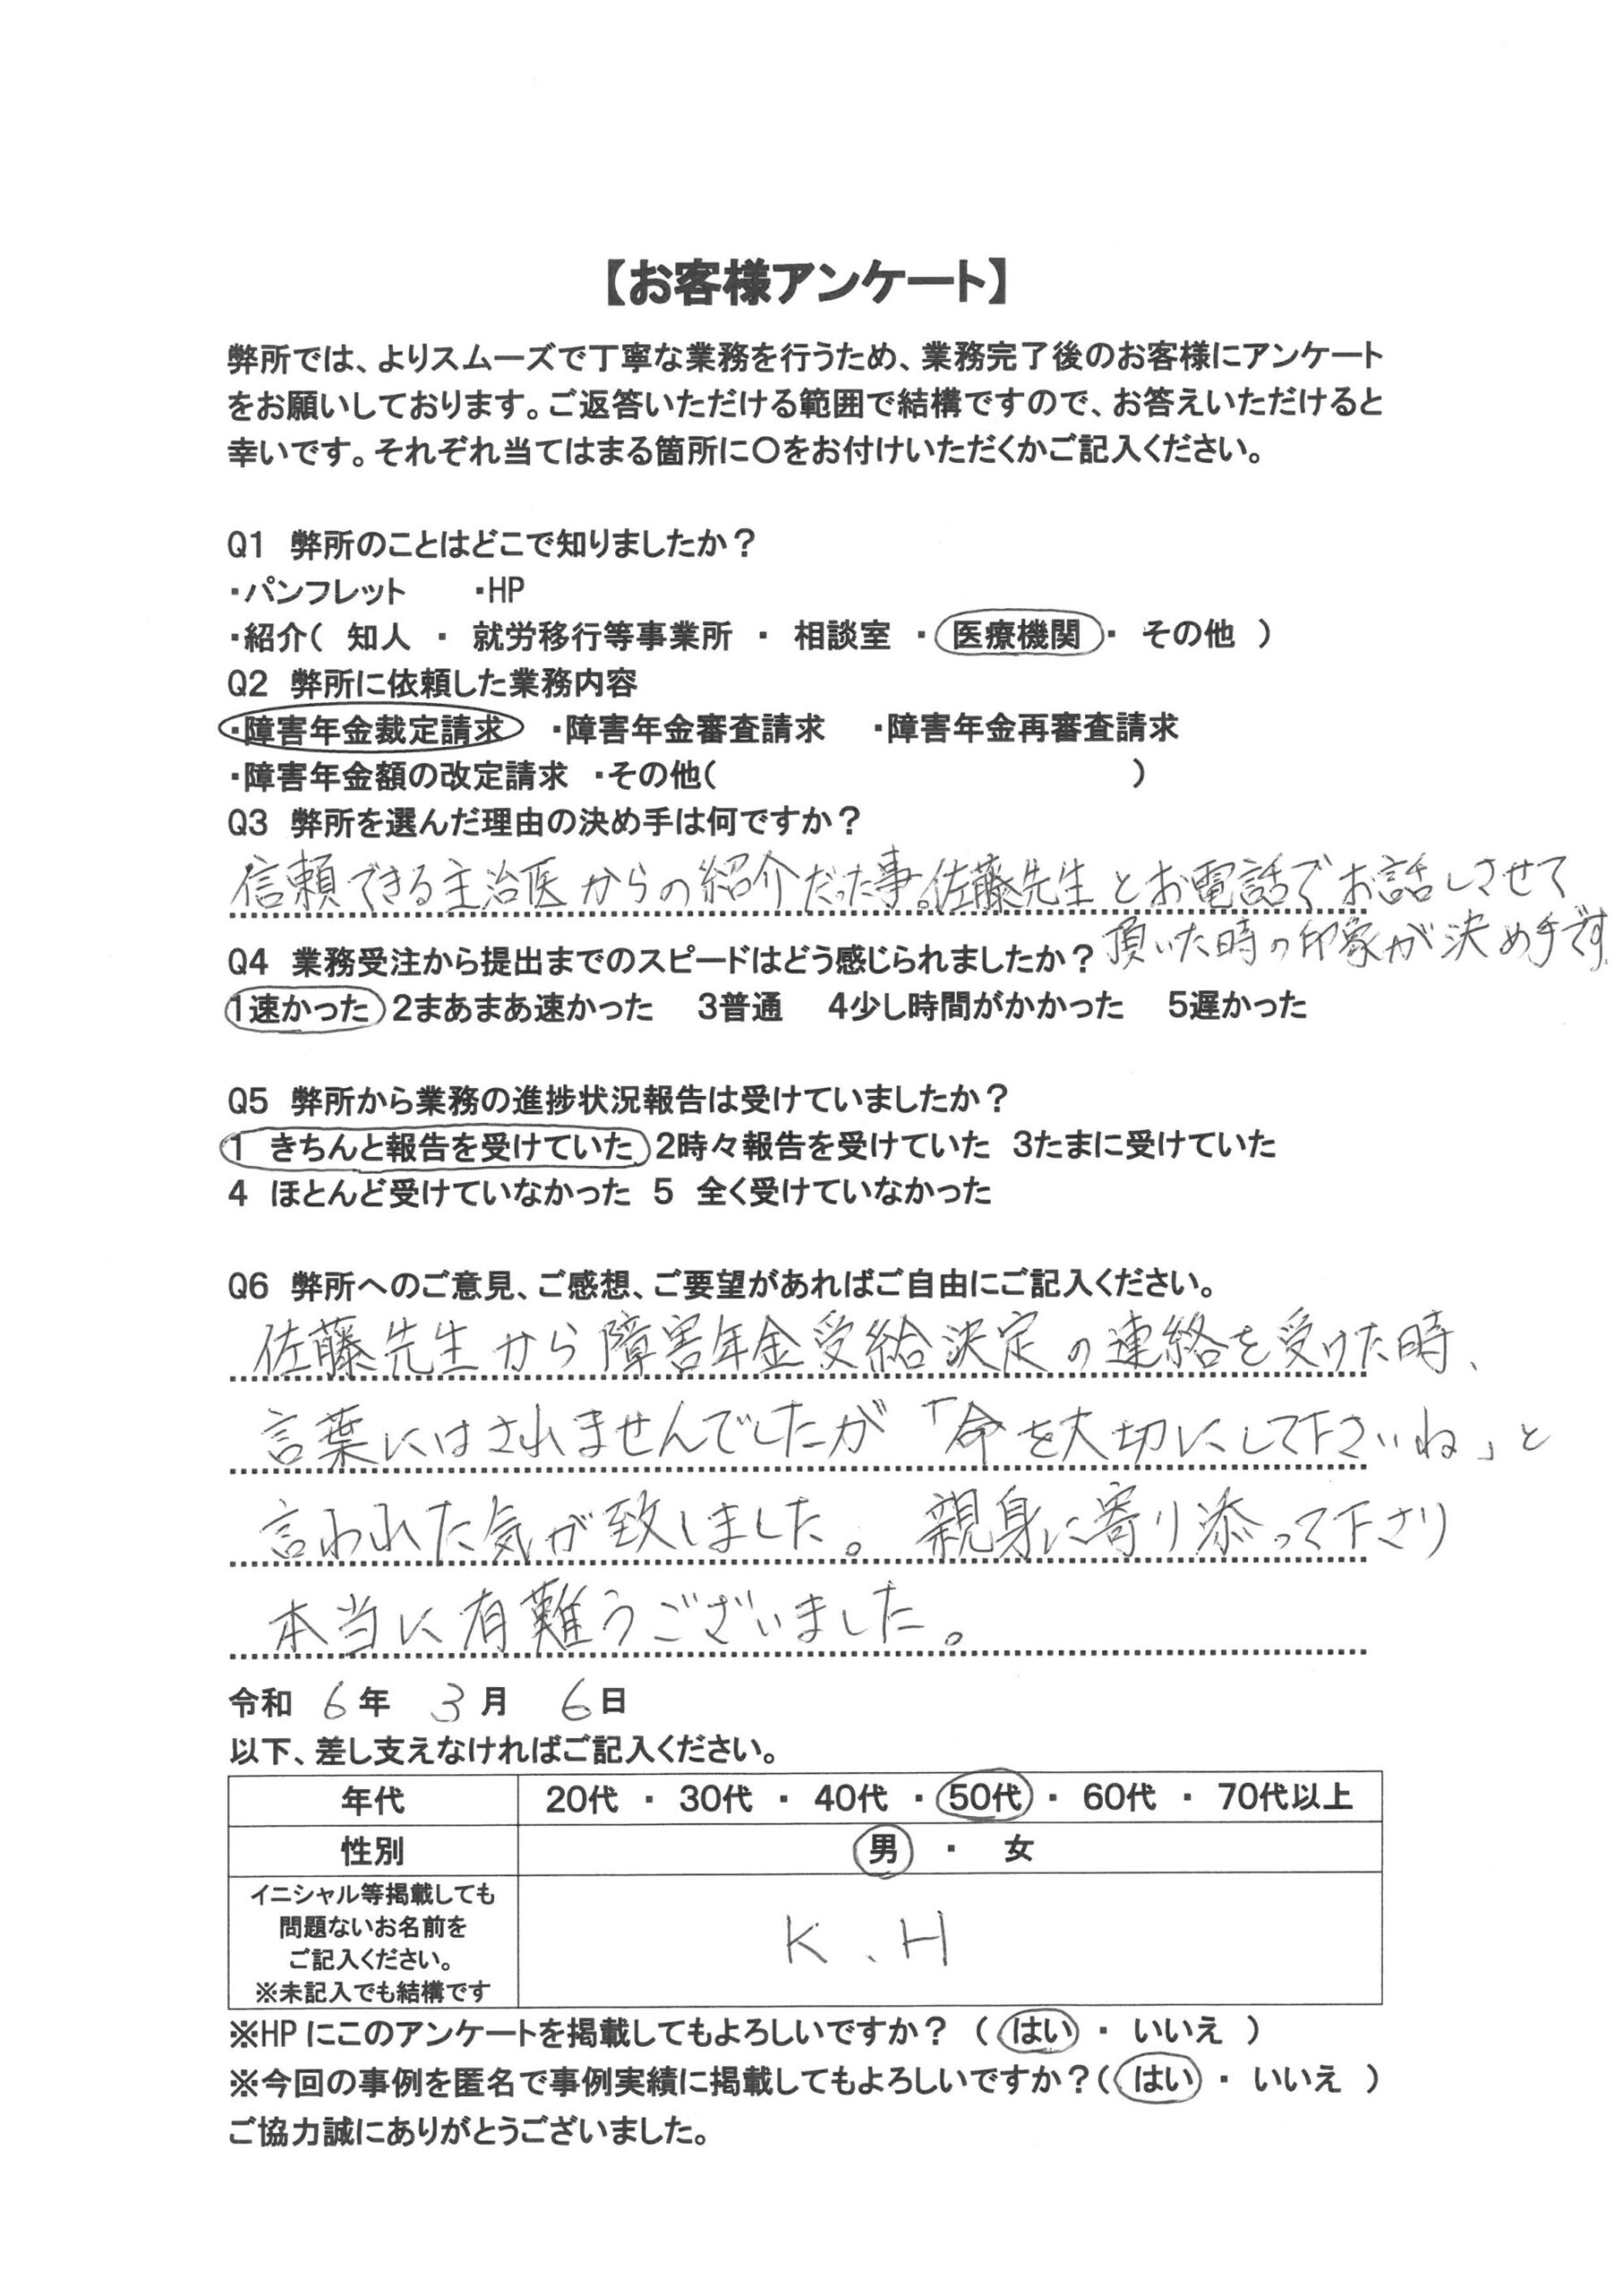 【お客様アンケート】
弊所では、よりスムーズで丁寧な業務を行うため、業務完了後のお客様にアンケート
をお願いしております。ご返答いただける範囲で結構ですので、お答えいただけると
幸いです。それぞれ当てはまる箇所に〇をお付けいただくかご記入ください。
Q1 弊所のことはどこで知りましたか？
・パンフレット ・HP
・紹介（ 知人 ・ 就労移行等事業所 ・ 相談室 ・ 医療機関 ・ その他 ）
Q2 弊所に依頼した業務内容
・障害年金裁定請求 ・障害年金審査請求 ・障害年金再審査請求
・障害年金額の改定請求 ・その他（ ）
Q3 弊所を選んだ理由の決め手は何ですか？
信頼できる主治医からの紹介だった事。佐藤先生とお電話でお話しさせて
頂いた時の印象が決め手です。
Q4 業務受注から提出までのスピードはどう感じられましたか？
1速かった 2まあまあ速かった 3普通 4少し時間がかかった 5遅かった
Q5 弊所から業務の進捗状況報告は受けていましたか？
1 きちんと報告を受けていた 2時々報告を受けていた 3たまに受けていた
4 ほとんど受けていなかった 5 全く受けていなかった
Q6 弊所へのご意見、ご感想、ご要望があればご自由にご記入ください。
佐藤先生から障害年金受給決定の連絡を受けた時、
言葉にはされませんでしたが「命を大切にして下さいね」と
言われた気が致しました。親身に寄り添って下さり
本当に有難うございました。
令和 6年 3月 6日
以下、差し支えなければご記入ください。
年代 20代 ・ 30代 ・ 40代 ・ 50代 ・ 60代 ・ 70代以上
性別 男 ・ 女
イニシャル等掲載しても
問題ないお名前を
ご記入ください。
※未記入でも結構です
K、H
※HPにこのアンケートを掲載してもよろしいですか？（ はい ・ いいえ ）
※今回の事例を匿名で事例実績に掲載してもよろしいですか？（ はい ・ いいえ ）
ご協力誠にありがとうございました。